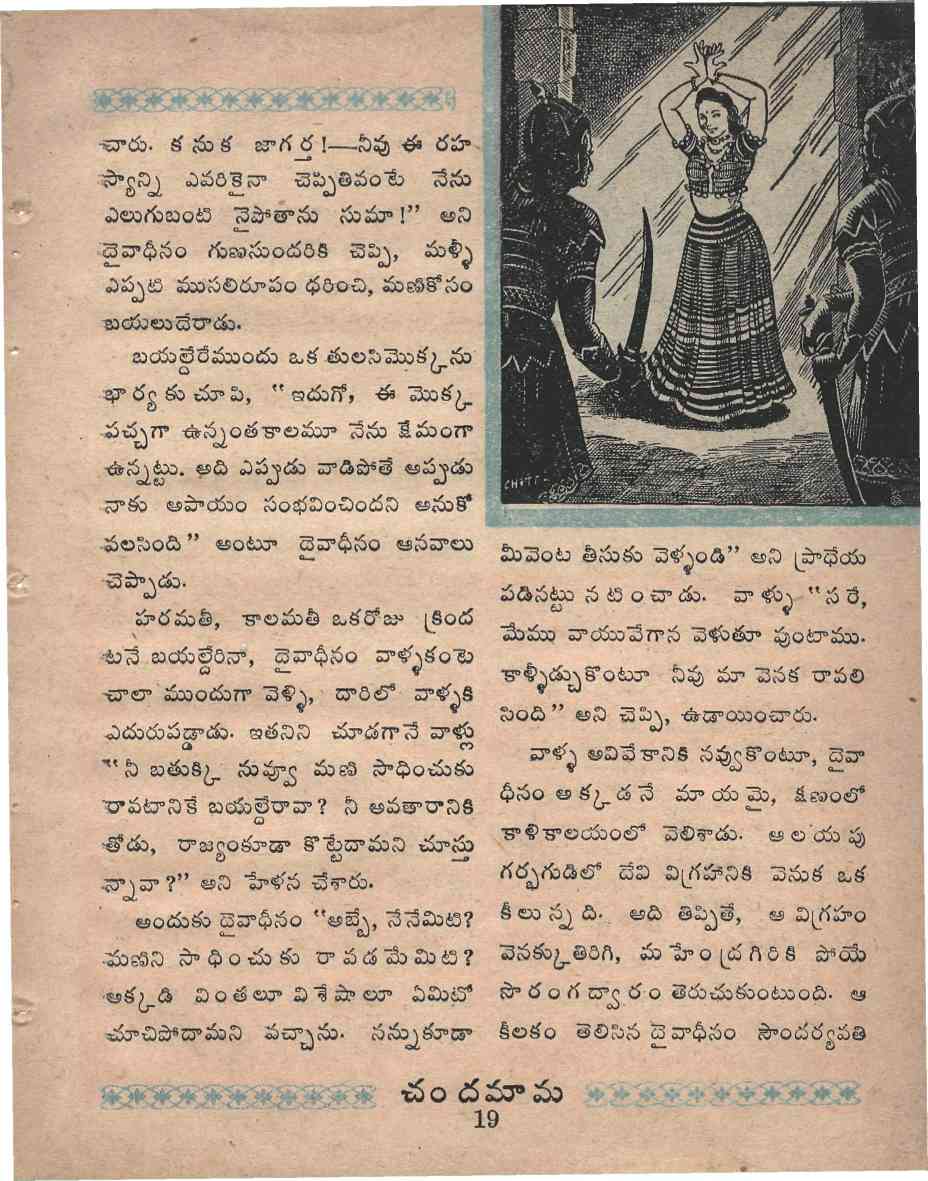 చారు. కనుక జాగర్త!—నీవు ఈ రహ
స్యాన్ని ఎవరికైనా చెప్పితివంటే నేను
ఎలుగుబంటి నైపోతాను సుమా!" అని
దైవాధీనం గుణసుందరికి చెప్పి, మళ్ళీ
ఎప్పటి ముసలిరూపం ధరించి, మణికోసం
బయలుదేరాడు.
బయల్దేరేముందు ఒక తులసిమొక్కను
భార్యకు చూపి, "ఇదుగో, ఈ మొక్క
పచ్చగా ఉన్నంతకాలమూ నేను క్షేమంగా
ఉన్నట్టు. అది ఎప్పుడు వాడిపోతే అప్పుడు
నాకు అపాయం సంభవించిందని అనుకో
వలసింది" అంటూ దైవాధీనం ఆనవాలు
చెప్పాడు.
హరమతీ, కాలమతీ ఒకరోజు క్రింద
టనే బయల్దేరినా, దైవాధీనం వాళ్ళకంటె
చాలా ముందుగా వెళ్ళి, దారిలో వాళ్ళకి
ఎదురుపడ్డాడు. ఇతనిని చూడగానే వాళ్లు
"నీ బతుక్కి నువ్వూ మణి సాధించుకు
రావటానికే బయల్దేరావా? నీ అవతారానికి
తోడు, రాజ్యంకూడా కొట్టేదామని చూస్తు
న్నావా?" అని హేళన చేశారు.
అందుకు దైవాధీనం "అబ్బే, నేనేమిటి?
మణిని సాధించుకు రావడమేమిటి?
అక్కడి వింతలూ విశేషాలూ ఏమిటో
చూచిపోదామని వచ్చాను. నన్నుకూడా
CHITRA
మీవెంట తీసుకు వెళ్ళండి" అని ప్రాధేయ
పడినట్టు నటించాడు. వాళ్ళు "సరే,
మేము వాయువేగాన వెళుతూ వుంటాము.
కాళ్ళీడ్చుకొంటూ నీవు మా వెనక రావలి
సింది" అని చెప్పి, ఉడాయించారు.
వాళ్ళ అవివేకానికి నవ్వుకొంటూ, దైవా
ధీనం అక్కడనే మాయమై, క్షణంలో
కాళికాలయంలో వెలిశాడు. ఆలయపు
గర్భగుడిలో దేవి విగ్రహానికి వెనుక ఒక
కీలున్నది. అది తిప్పితే, ఆ విగ్రహం
వెనక్కుతిరిగి, మహేంద్రగిరికి పోయే
సొరంగద్వారం తెరుచుకుంటుంది. ఆ
కీలకం తెలిసిన దైవాధీనం సౌందర్యవతి
చందమామ
19